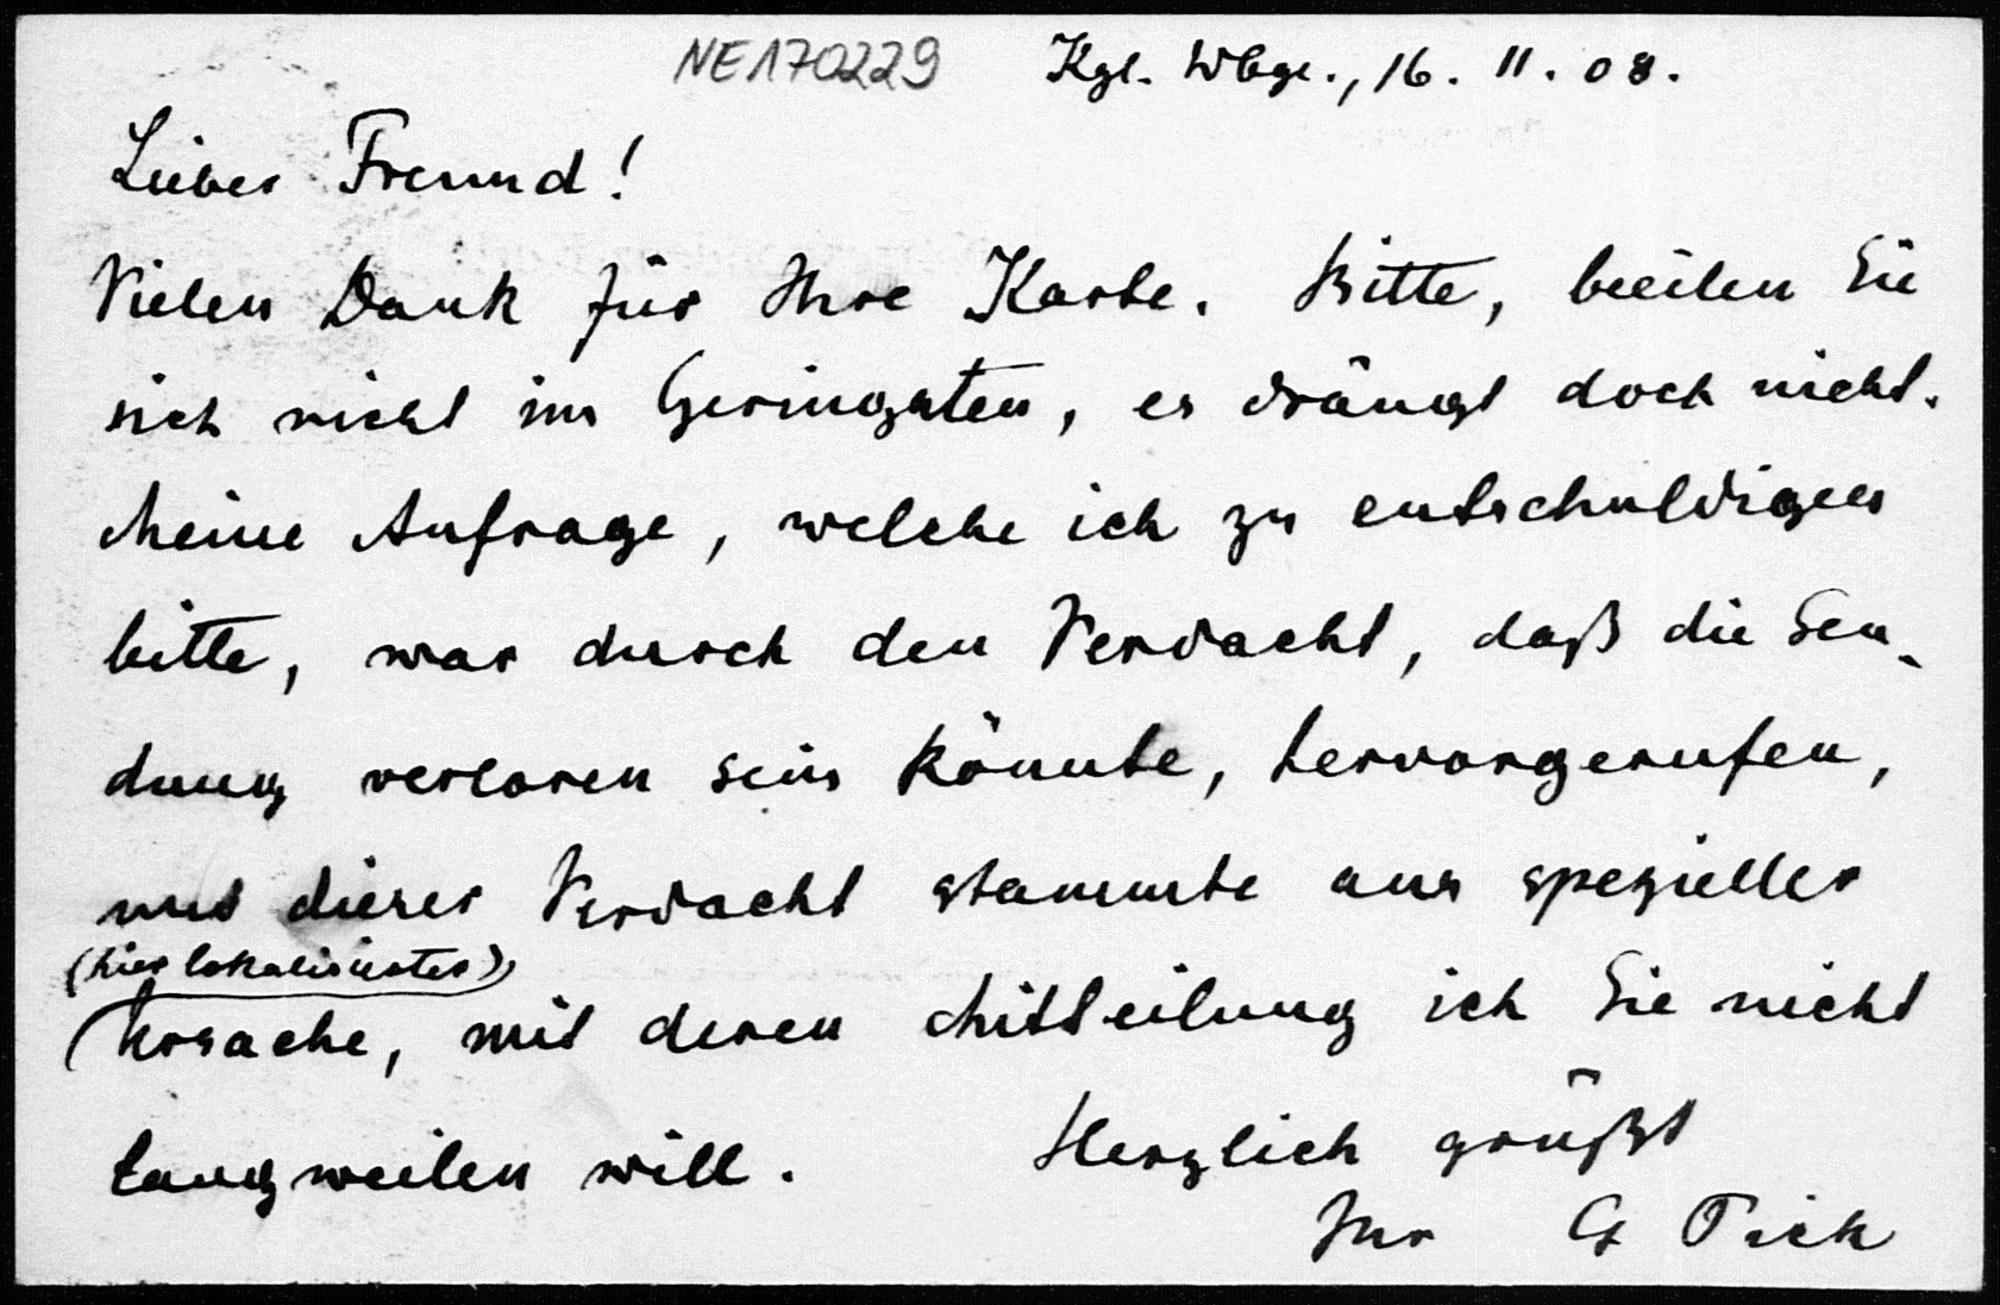 NE170229 Kgl. Wbge., 16. 11. 08.
Lieber Freund!
Vielen Dank für Ihre Karte. Bitte, beeilen Sie
sich nicht im Geringsten, es drängt doch nicht.
Meine Anfrage, welche ich zu entschuldigen
bitte, war durch den Verdacht, daß die Sen-
dung verloren sein könnte, hervorgerufen,
und dieser Verdacht stammte aus spezieller
(hier lokalisierter)
Ursache, mit deren Mitteilung ich Sie nicht
langweilen will. Herzlich grüßt
Ihr G Pick